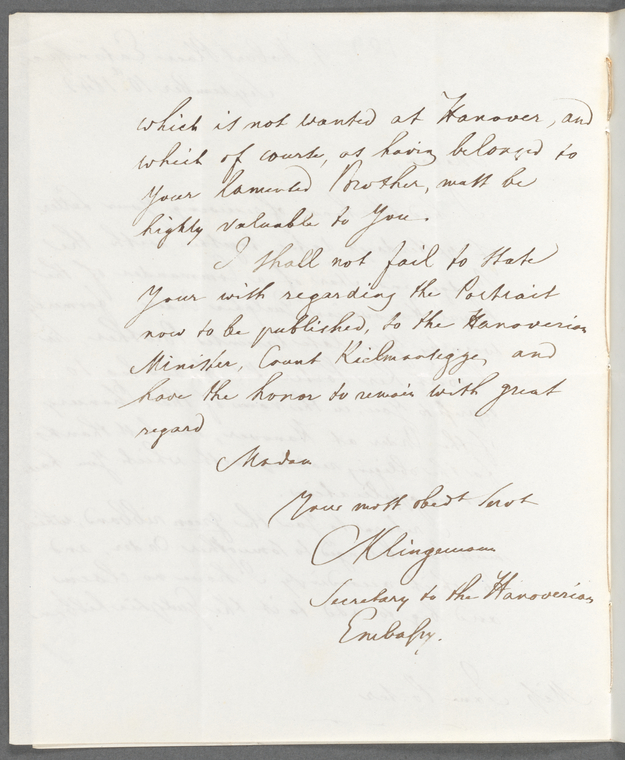 which is not wanted at Hanover, and
which of course, as having belonged to
Your lamented Brother, must be
highly valuable to You.
I shall not fail to state
Your wish regarding the Portrait
now to be published, to the Hanoverian
Minister, Count Kielmansegge, and
have the honor to remain with great
regard
Madam
Your most obedt Servt
CKlingemann
Secretary to the Hanoverian
Embassy.